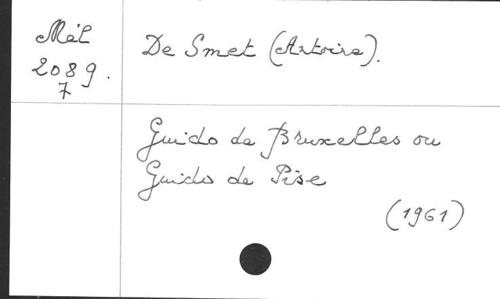 Mél
2089.
7
De Smet (Antoine).
Guido de Bruxelles ou
Guido de Pise
(1961)